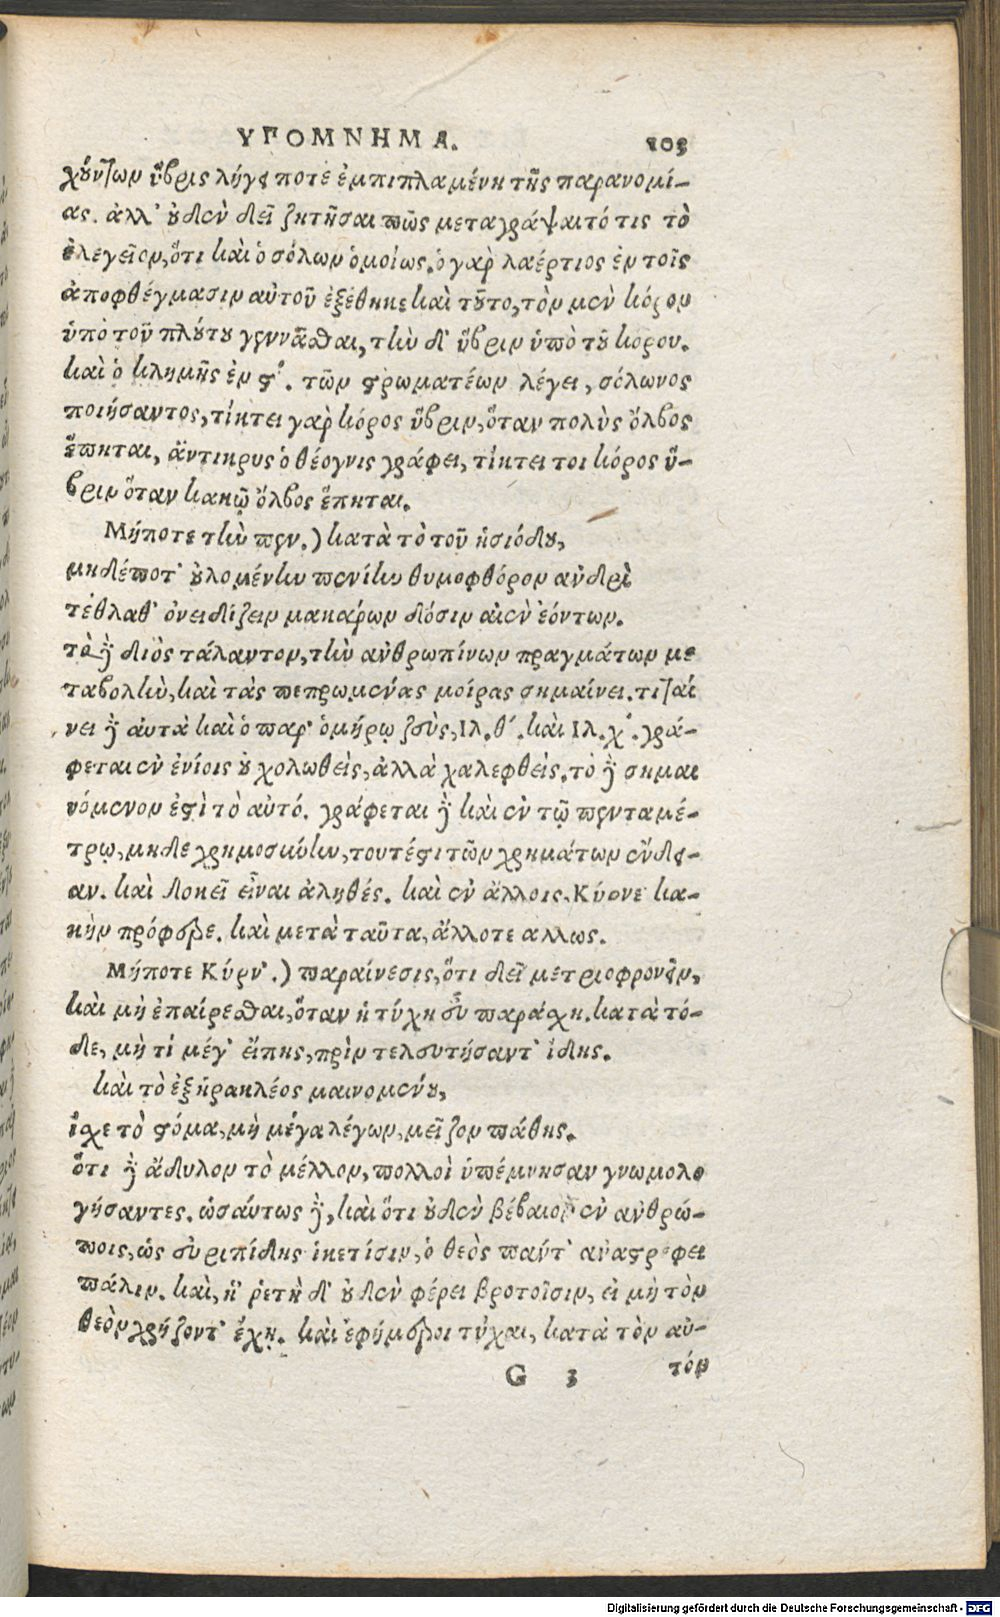 ΥΠΟΜΝΗΜΑ. 103
χούντων ὕβρις λήγει ποτὲ ἐμπιπλαμένη τῆς παρανομί-
ας. ἀλλ' οὐδὲν δεῖ ζητῆσαι πῶς μεταγράψαιτό τις τὸ
ἐλεγεῖον, ὅτι καὶ ὁ σόλων ὁμοίως. ὁ γὰρ λαέρτιος ἐν τοῖς
ἀποφθέγμασιν αὐτοῦ ἐξέθηκε καὶ τοῦτο, τὸν μὲν κόρον
ὑπὸ τοῦ πλούτου γεννᾶσθαι, τὴν δ' ὕβριν ὑπὸ τοῦ κορου.
καὶ ὁ κλημῆς ἐν ϛ'. τῶν στρωματέων λέγει, σόλωνος
ποιήσαντος, τίκτει γὰρ κόρος ὕβριν, ὅταν πολὺς ὄλβος
ἕπηται, ἄντικρυς ὁ θέογνις γράφει, τίκτει τοι κόρος ὕ-
βριν ὅταν κακῷ ὄλβος ἕπηται.
Μήποτε τὴν πεν.) κατὰ τὸ τοῦ ἡσιόδου,
μηδέποτ' οὐλομένην πενίην θυμοφθόρον ανδρὶ
τέθλαθ' ὀνειδίζειν μακάρων δόσιν αἰὲν ἐόντων.
τὸ δὲ διὸς τάλαντον, τὴν ἀνθρωπίνων πραγμάτων με
ταβολὴν, καὶ τὰς πεπρωμένας μοίρας σημαίνει. τιταί
νει δὲ αυτὰ καὶ ὁ παρ' ὁμήρῳ ζεὺς, Ιλ. θ'. καὶ Ιλ. χ'. γρά-
φεται ἐν ἐνίοις οὐ χολωθεὶς, ἀλλὰ χαλεφθείς. τὸ δὲ σημαι
νόμενον ἐστὶ τὸ αὐτό. γράφεται δὲ καὶ ἐν τῷ πενταμέ-
τρῳ, μηδε χρημοσύνην, τουτέστι τῶν χρημάτων ἔνδει-
αν. καὶ δοκεῖ εἶναι ἀληθές. καὶ ἐν ἄλλοις, Κύρνε κα-
κὴν πρόφερε. καὶ μετὰ ταῦτα, ἄλλοτε αλλως.
Μήποτε Κύρν'.) παραίνεσις, ὅτι δεῖ μετριοφρονεῖν,
καὶ μὴ ἐπαίρεσθαι, ὅταν ἡ τύχη εὖ παράσχῃ. κατὰ τό-
δε, μή τι μέγ' εἴπῃς, πρὶν τελευτήσαντ' ἴδῃς.
καὶ τὸ ἐξ ἡρακλέος μαινομένου,
ἴσχε τὸ στόμα, μὴ μέγα λέγων, μεῖζον πάθῃς.
ὅτι δὲ ἄδυλον τὸ μέλλον, πολλοὶ ὑπέμνησαν γνωμολο
γήσαντες. ὡσάυτως δὲ, καὶ ὅτι οὐδὲν βέβαιον ἐν ανθρώ-
ποις, ὡς εὐριπίδης ἱκετίσιν, ὁ θεὸς παντ' αναστρέφει
πάλιν. καὶ, ἡ ῥετὴ δ' οὐδὲν φέρει βροτοῖσιν, εἰ μὴ τὸν
θεὸν χρῄζοντ' ἔχῃ. καὶ ἐφήμεροι τύχαι, κατὰ τὸν αὐ-
G 3 τόν
Digitalisierung gefördert durch die Deutsche Forschungsgemeinschaft - DFG